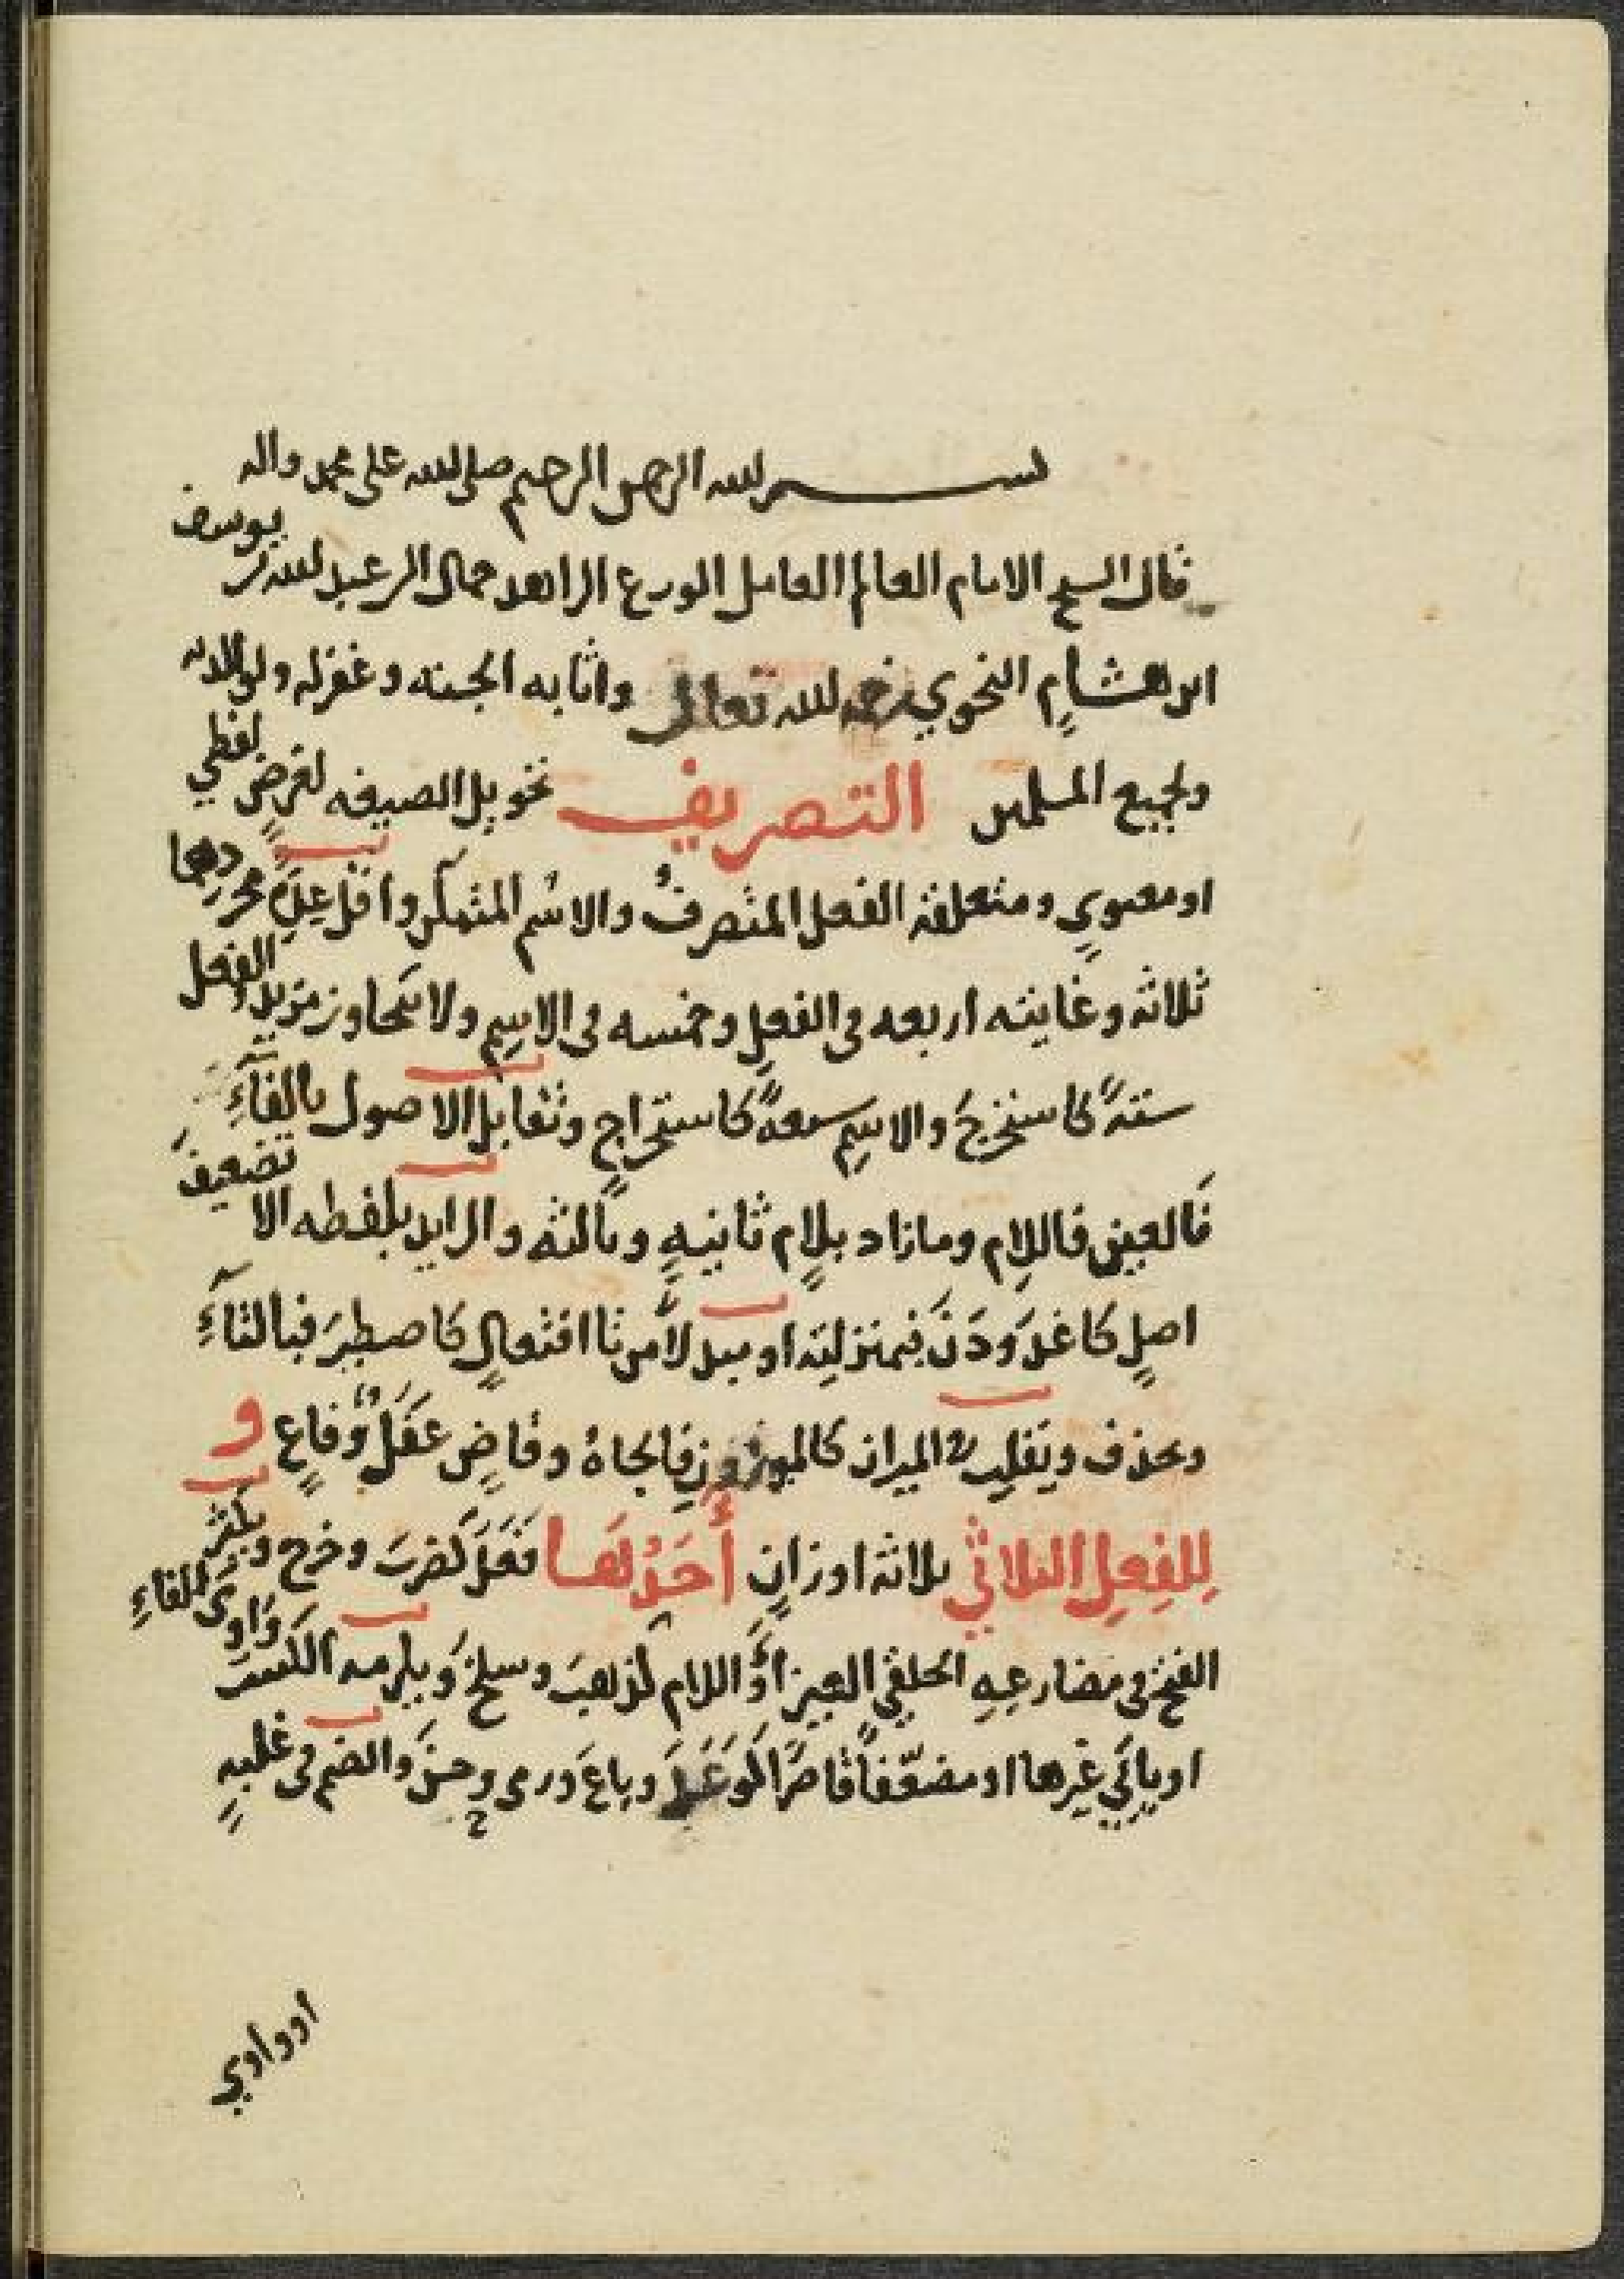 بسم الله الرحمن الرحيم صلى الله على محمد واله
قال الشيخ الامام العالم العامل الورع الزاهد جمال الدين عبد الله بن يوسف
ابن هشامٍ النحوي رحمه الله تعالى واثابه الجنه وغفر له ولوالديه
ولجميع المسلمين التصريف تحويل الصيغه لغرضٍ لفظيٍ
او معنويٍ ومتعلقه الفعل المتصرفُ والاسم المتمكن واقل عِلَم مجردِهما
ثلاثه وغايته اربعه في الفعلِ وخمسه في الاسِمِ ولا يتجاوز مزيد الفعل
ستةً كاستخرجَ والاسِمِ سبعةً كاستخراجٍ وتقابل الاصول بالفآءِ
فَالعين فاللامِ وما زاد بلامٍ ثانيهٍ وثالثه والزايد بلفظه الا تضعيفَ
اصلٍ كاغدَودَنَ فبمنزلته او مبدلاً من تا افتعالٍ كاصطبرَ فبالتآءِ
ويحذف ويقلب الميزان كالموزونِ فالجاهُ وقاضٍ عفَل وفاعٍ و
لِلفِعِلِ الثلاثي ثلاثة اوزانٍ أَحَدُهَا فَعَلَ كَضربَ وخرج ويكثر
الفتح في مضارعِهِ الحلقي العين أو اللام كذهبَ وسلخَ ويلزمه الكسر واوى الفاءِ
او يائي غيرها او مضعّفاً قاصرًا كوَعَدَ وباعَ ورمى وحنَّ والضم في غلبهٍ
او واوي